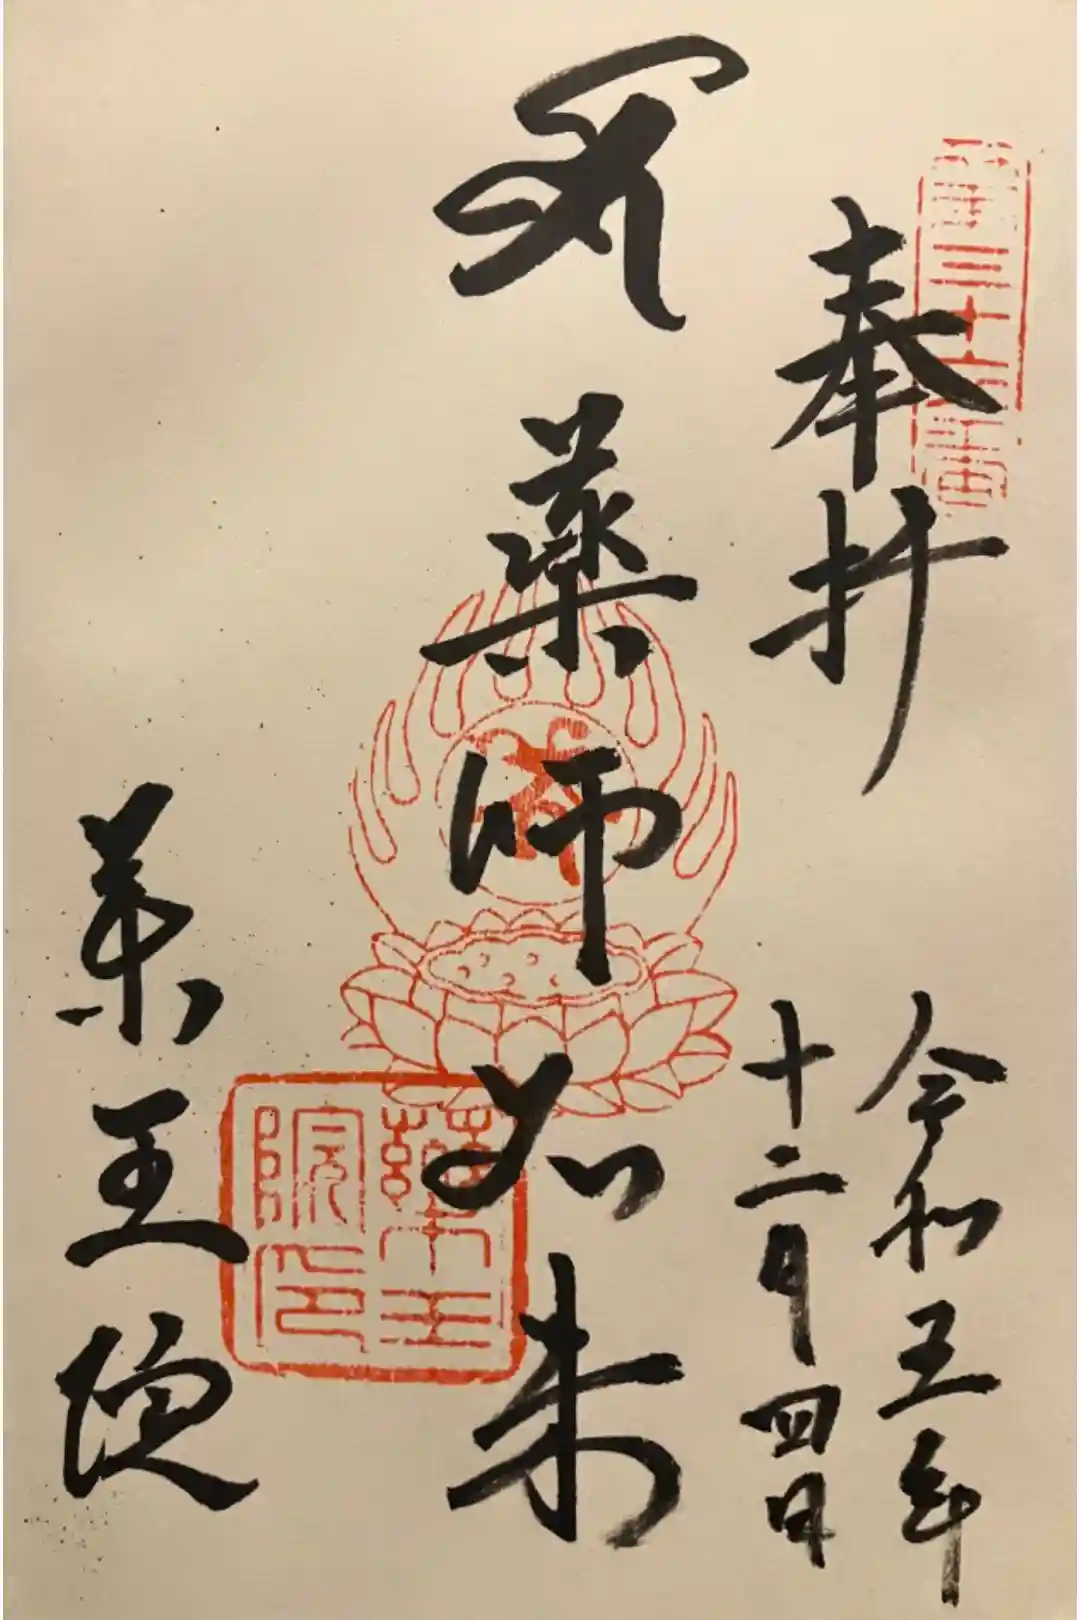 奉拝
令和五年
十二月四日
薬師如来
薬王院
薬王
院印